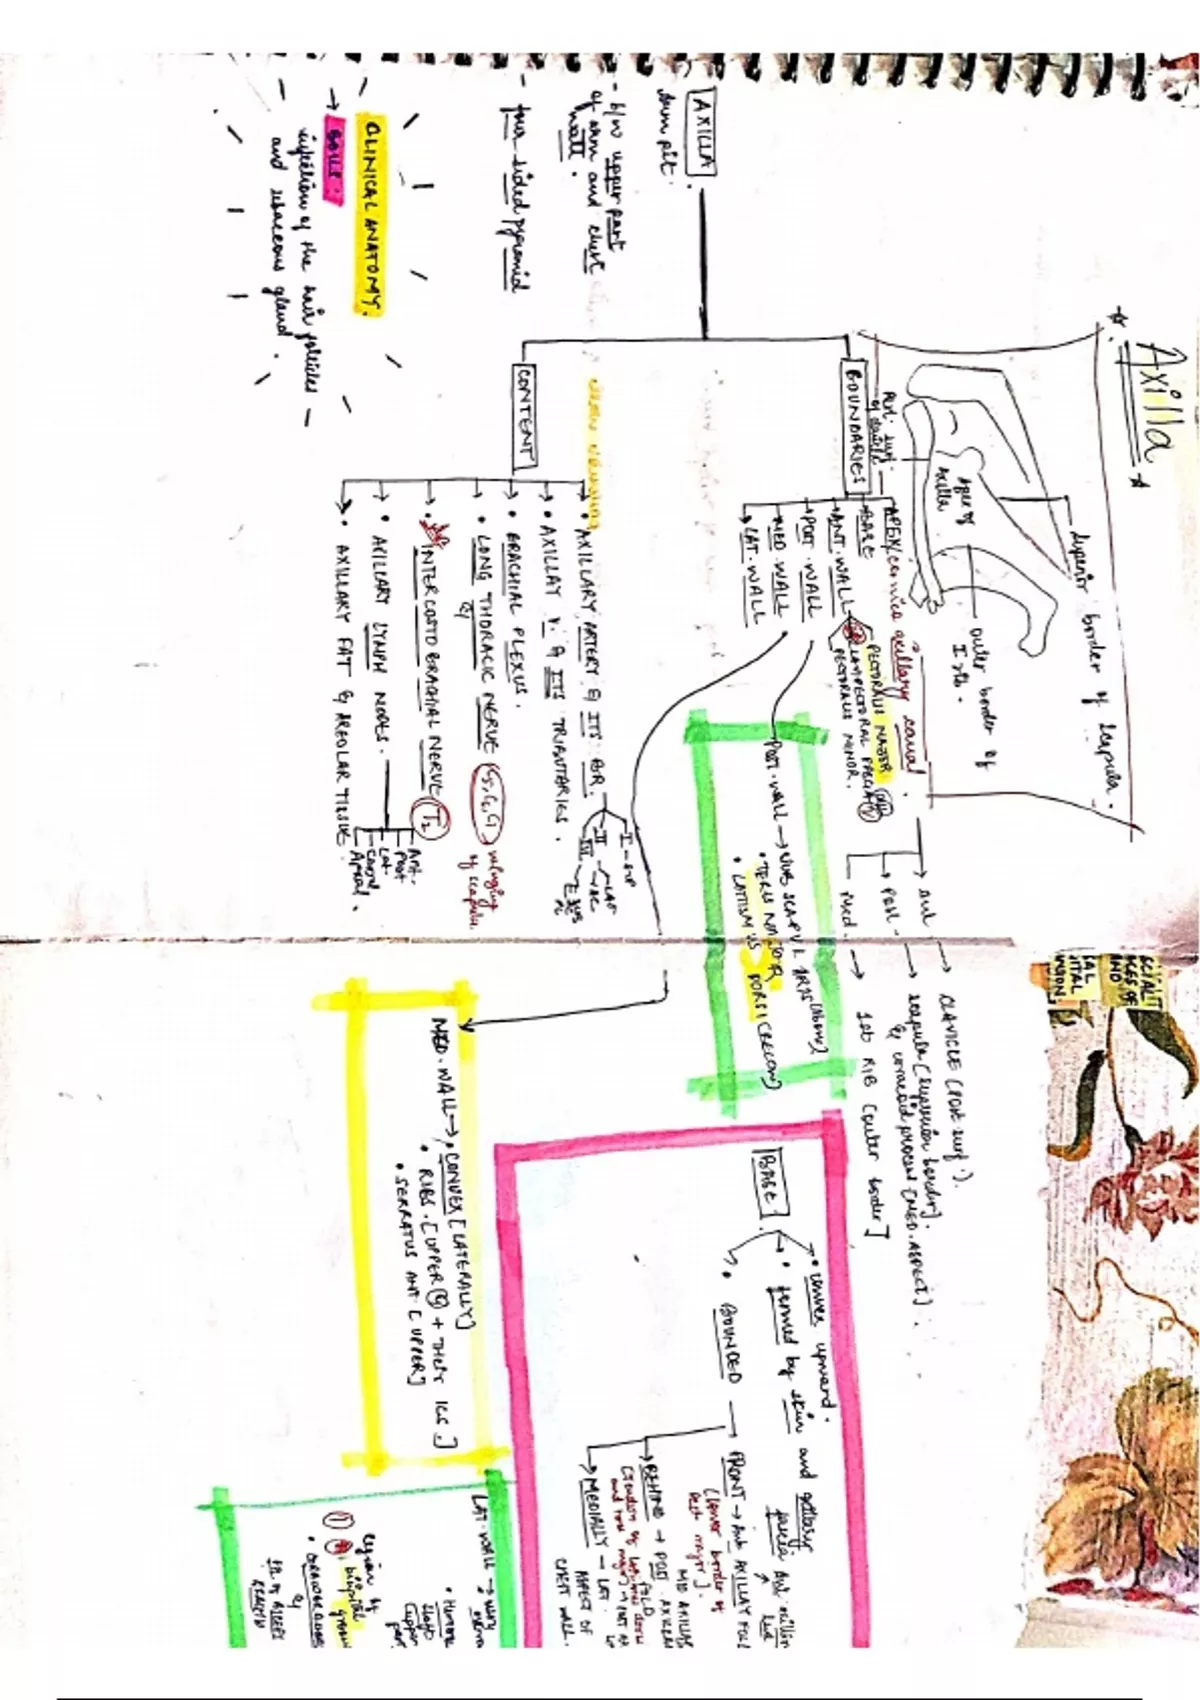 Axilla
Superior border of Scapula.
Apex of
Axilla
outer border of
I rib.
Post. surf.
of clavicle
AXILLA
Arm pit.
- b/w upper part
of arm and chest
wall.
- four sided pyramid
BOUNDARIES
APEX/cervico axillary canal.
BASE
ANT. WALL
PECTORALIS MAJOR
CLAVIPECTORAL FASCIA
PECTORALIS MINOR.
POST. WALL
MED WALL
LAT. WALL
ant → CLAVICLE (POST surf.).
Post. → scapula [superior border].
& coracoid process [MED. ASPECT].
Med. → 1st RIB [outer border]
CONTENT
• AXILLARY ARTERY & ITS BR.
I - SUP
II
III
• AXILLAY V. & ITS TRIAUTARIES.
• BRACHIAL PLEXUS.
• LONG THORACIC NERVE C5, C6, C7 winging
of scapula.
• INTERCOSTO BRACHIAL NERVE T2
• AXILLARY LYMPH NODES.
Ant.
Post
Lat
Central
Apical.
• AXILLARY FAT & AREOLAR TISSUE.
CLINICAL ANATOMY.
→ BOILS:
infection of the hair folicles
and sebaceous gland.
POST. WALL → SUB SCAPUL ARIS [Above]
• TERES MAJOR
• LATISMUS DORSI [BELOW]
MED. WALL → • CONVEX [LATERALLY]
• RIBS. [UPPER 4 + THEIR ICS]
• SERRATUS ANT. [UPPER]
BASE
• convex upward.
• formed by skin and axillary
fascia
• BOUNDED → FRONT → Ant AXILLAY FOLD
[lower border of
Pect major].
BEHIND → POST. AXILLARY
FOLD
[Tendon of latissimus dorsi
and teres major]
MEDIALLY → LAT.
ASPECT OF
CHEST WALL.
LAT. WALL → very
narrow
• Humerus
shaft
[upper
part
region of
① bicipital groove
• CORACOBRACHIALIS
&
SH. OF BICEPS
BRACHII